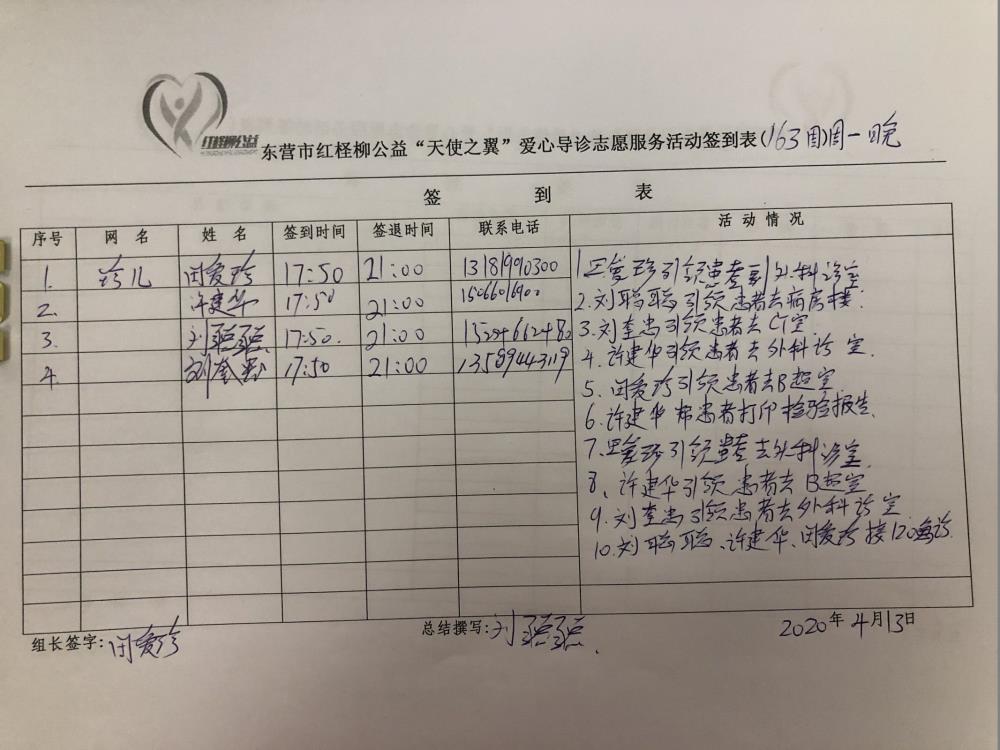 红柽柳公益
东营市红柽柳公益“天使之翼”爱心导诊志愿服务活动签到表(163周)周一晚
签 到 表
序号 网 名 姓 名 签到时间 签退时间 联系电话 活 动 情 况
1. 珍儿 闵爱珍 17:50 21:00 13181990300
2. 许建华 17:50 21:00
3. 刘聪聪 17:50. 21:00
4. 刘奎忠 17:50 21:00 13589443119
1 闵爱珍引领患者到外科诊室
2.刘聪聪引领患者去病房楼.
3.刘奎忠引领患者去CT室.
4.许建华引领患者去外科诊室.
5.闵爱珍引领患者去B超室.
6.许建华帮患者打印检验报告.
7.闵爱珍引领患者去外科诊室.
8、许建华引领患者去B超室
9.刘奎忠引领患者去外科诊室
10.刘聪聪、许建华、闵爱珍接120急诊.
组长签字:闵爱珍 总结撰写:刘聪聪. 2020年4月13日